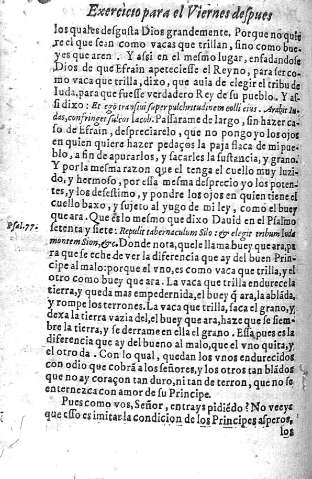 Exercicio para el Viernes despues
los quales desgusta Dios grandemente. Porque no quie
re el que sean como vacas que trillan, sino como bue-
yes que aren. Y assi en el mesmo lugar, enfadandose
Dios de que Efrain apeteciesse el Reyno, para ser co-
mo vaca que trilla, dixo, que auia de elegir el tribu de
Iuda, para que fuesse verdadero Rey de su pueblo. Y as-
si dixo: Et ego transiui super pulchritudinem colli eius. Arabit Iu-
das, confringet sulcos Iacob. Passarame de largo, sin hazer ca-
so de Efrain, despreciarelo, que no pongo yo los ojos
en quien quiere hazer pedaços la paja flaca de mi pue-
blo, a fin de apurarlos, y sacarles la sustancia, y grano.
Y por la mesma razon que el tenga el cuello muy luzi-
do, y hermoso, por essa mesma desprecio yo los poten-
tes, y los desestimo, y pondre los ojos en quien tiene el
cuello baxo, y sujeto al yugo de mi ley, como el buey
que ara. Que es lo mesmo que dixo Dauid en el Psalmo
Psal.77. setenta y siete: Repulit tabernaculum Silo: & elegit tribum Iuda
montem Sion, &c. Donde nota, que le llama buey que ara, pa
ra que se eche de ver la diferencia que ay del buen Prin-
cipe al malo: porque el vno, es como vaca que trilla, y el
otro como buey que ara. La vaca que trilla endurece la
tierra, y queda mas empedernida, el buey q̃ ara, la ablãda,
y rompe los terrones. La vaca que trilla, saca el grano, y
dexa la tierra vazia del, el buey que ara, haze que se siem-
bre la tierra, y se derrame en ella el grano. Essa pues es la
diferencia que ay del bueno al malo, que el vno quita, y
el otro da. Con lo qual, quedan los vnos endurecidos
con odio que cobrã a los señores, y los otros tan blãdos
que no ay coraçon tan duro, ni tan de terron, que no se
enternezca con amor de su Principe.
Pues como vos, Señor, entrays pidiẽdo? No veeys
que esso es imitar la condicion de los Principes asperos,
los